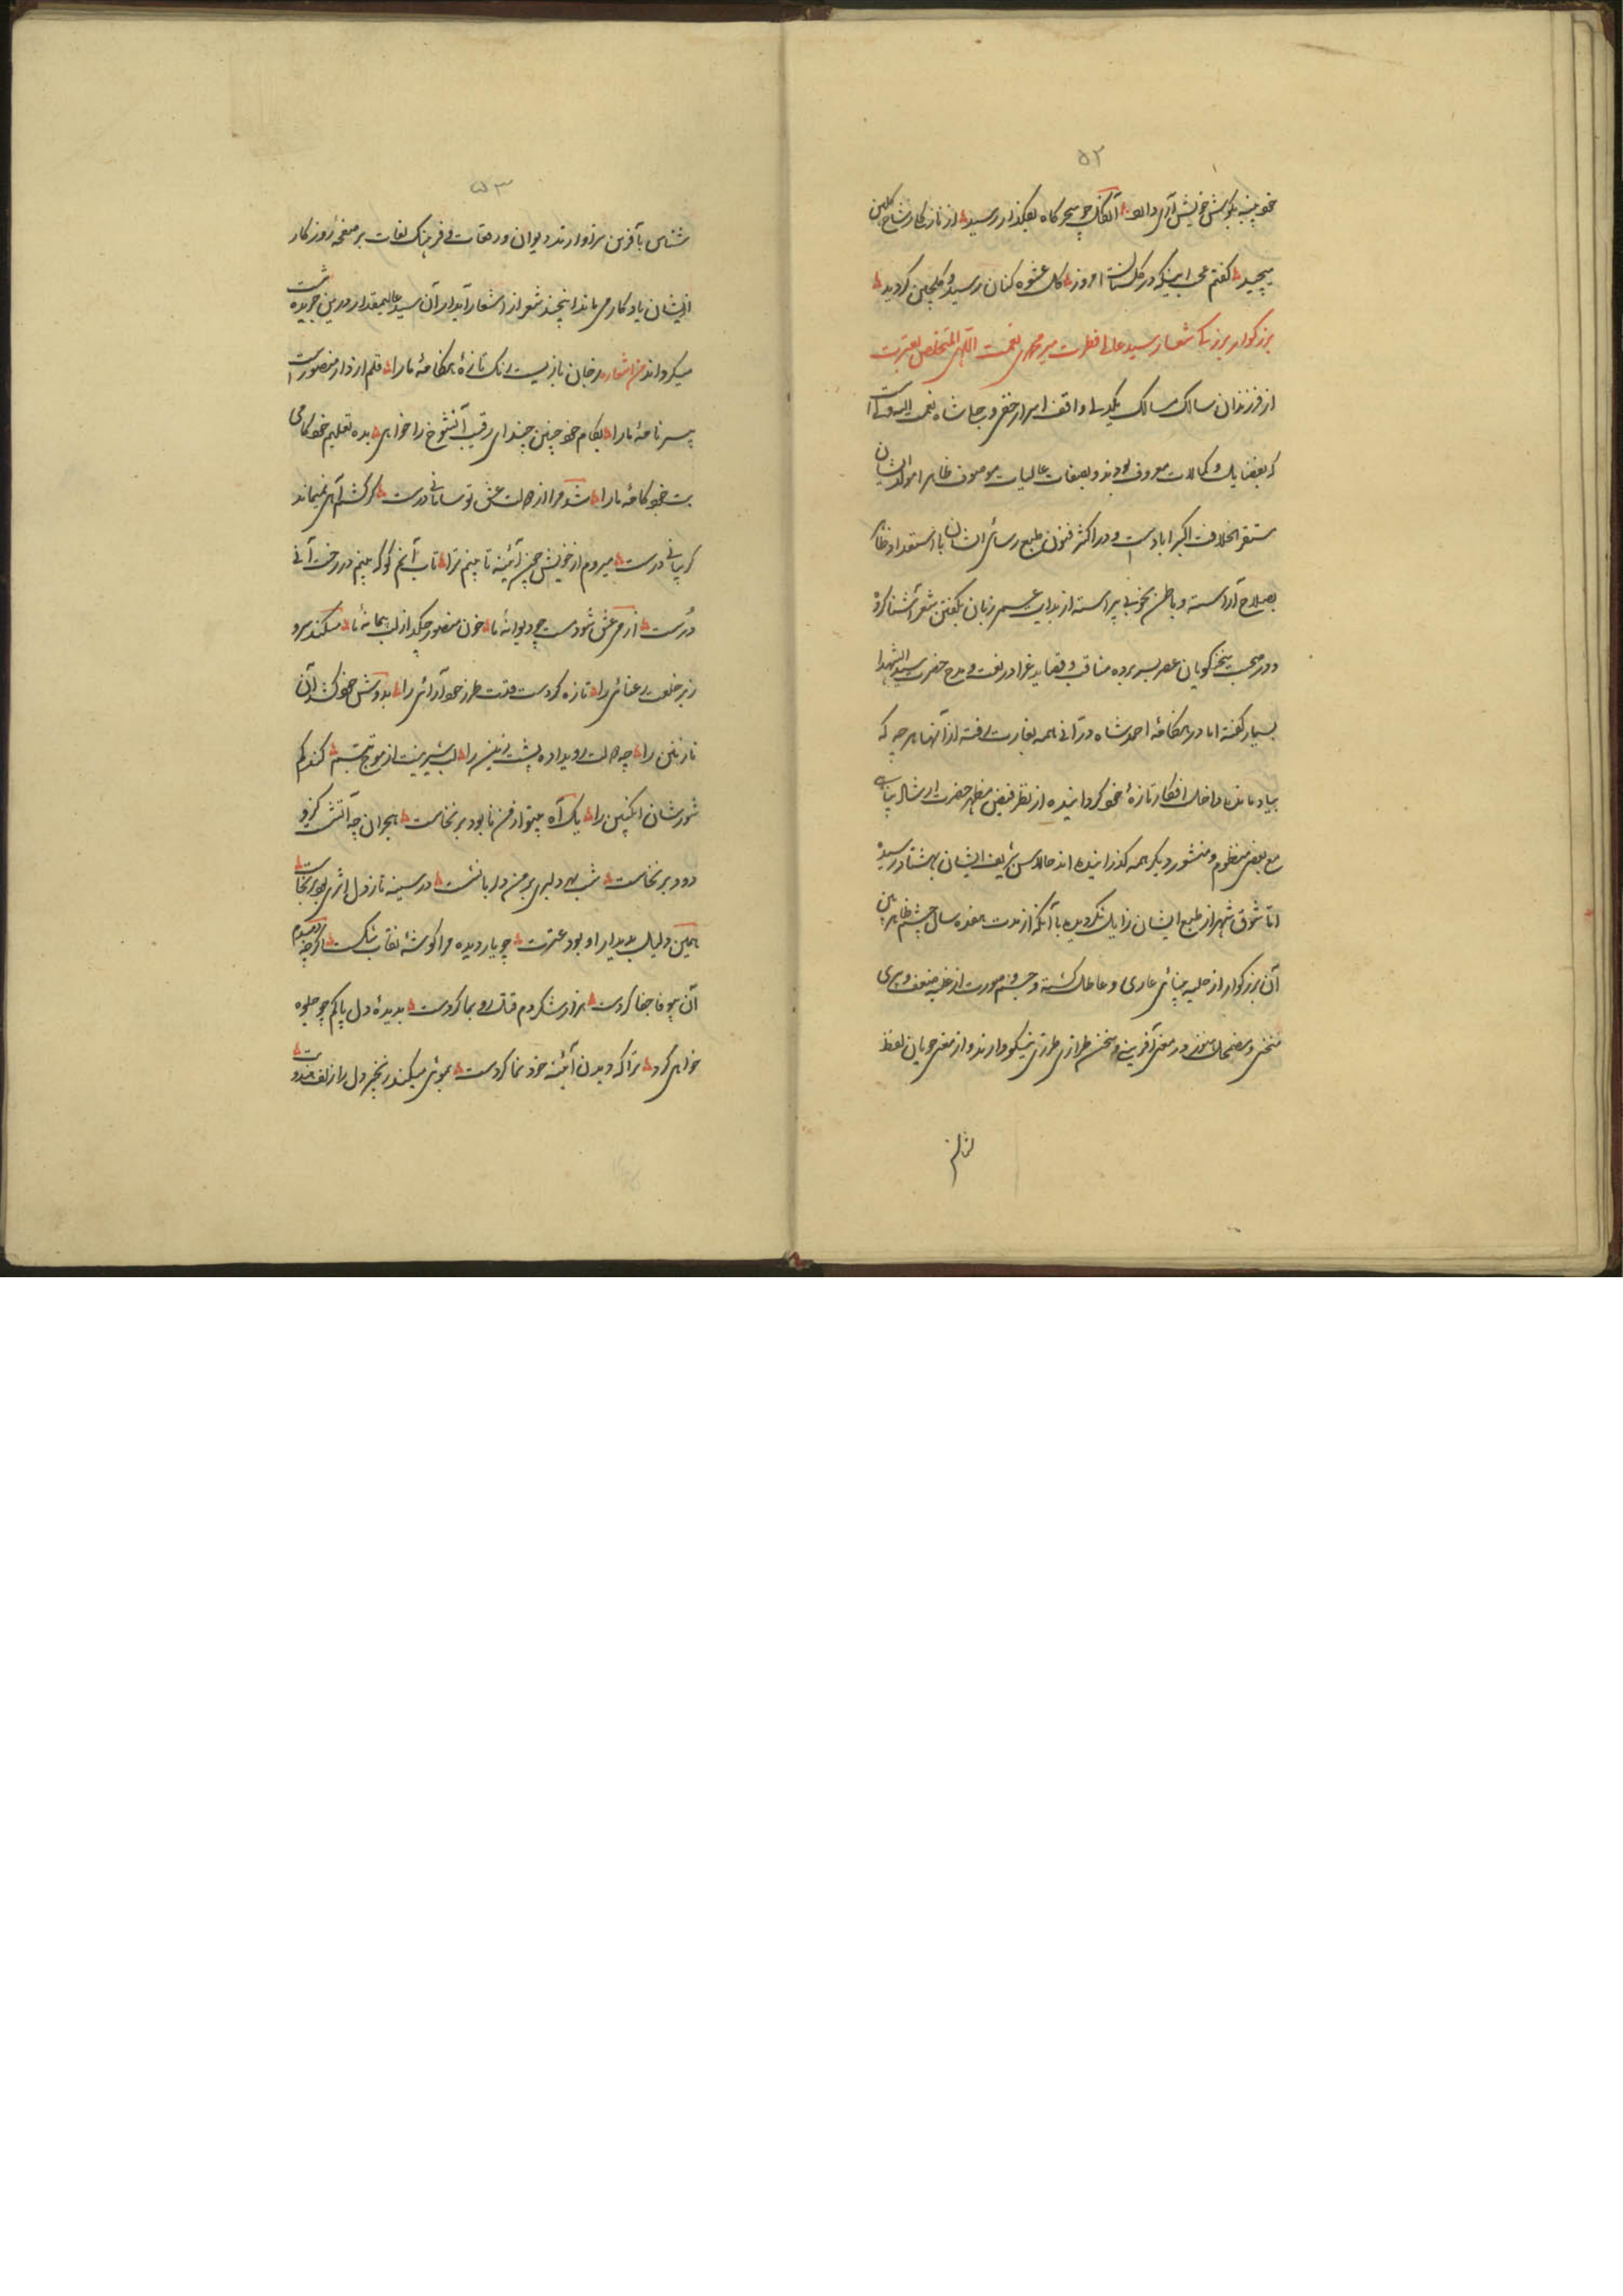 ۵۲
خود پنبه بگوش خویش آری دانه آن گل چو سحرگاه بگلزار رسید از ناز کنار شاخ گلبن
پیچید گفتم محب اینکه در گلستان امروز گل عشوه کنان رسید و گلچین گردید
بزرگوار بزرگی شعار سید عالی فطرت میر محمدی نعمت اللهی المتخلص بعترت
از فرزندان سالک مسالک یکدلی واقف اسرار خفی و جلی شاه نعمت الله ولی است
که بفضایل و کمالات معروف بودند و بصفات عالیات موصوف ظاهرا مولد ایشان
مستقر الخلافت اکبراباد است و در اکثر فنون طبع رسای ایشان با استعداد ظاهر
بصلاح آراسته و باطن بخوبی پیراسته از بدایت عمر زبان بگفتن شعر آشنا کرده
و در صحبت سخن گویان عصر بسر برده مناقب و قصاید غرا در نعت و مدح حضرت سید الشهدا
بسیار گفته اما در هنگامهٔ احمد شاه درانی همه بغارت رفته از آنها هر چه که
بیاد مانده داخل افکار تازهٔ خود گردانیده از نظر فیض مظهر حضرت ارشاد پناهی
مع بعضی منظوم و منثور دیگر همه گذرانیده اند حالا سن شریف ایشان بهشتاد رسیده
اما شوق شعر از طبع ایشان زایل نگردیده با آنکه از مدت هفده سال چشم ظاهر بین
آن بزرگوار از حلیه بینائی عاری و عاطل گشته و جسم صورت از غلبه ضعف و پیری
منحنی و مضمحل هنوز در معنی آفرینی و سخن طرازی طرزی نیکو دارند و از معنی جویان لفظ
شناس
۵۳
شناس بآفرین سزاوارند دیوان و رقعات و فرهنگ لغات بر صفحهٔ روزگار
از ایشان یادگار می ماند اینچند شعر از اشعار آبدار آن سید عالیمقدار درین جریده ثبت
میگرداند من اشعاره ز خان باز بست رنگ تازهٔ هنگامهٔ ما را قلم از دار منصور است
سر نامهٔ ما را بکام خود چنین چند ای رقیب آنشوخ را خواهی بده تعلیم خودکامی
بت خودکامهٔ ما را شد مرا از حالت عشق تو سامانی درست گر کشم آهی نمیماند
گریبانی درست میروم از خویش چون آئینه تا بینم ترا تاب آنم کو که بینم در رخت آنی
درست از می عشق شود مست چو دیوانهٔ ما خون منصور چکد از لب پیمانهٔ ما میکند سرو
زبر خلعت رعنائی را تازه کردست قدت طرز خودآرائی را بدوش خود کشد آن
نازنین را چه حالت رویداده پشت زین را لب شیرینت از موج تبسم کند کم
شور شان انگبین را یک آه چو از من نابود برنخاست هجران چه آتشت کزو
دود برنخاست شب بهر دلبری بر من دلربا نشست در سینه تاز دل اثری بود برنخاست
همین دلیل بدیدار او بود عترت چو یار دیده مرا گوشهٔ نقاب شکست اگرچه
آن بیوفا جفا کردست هزار شکر دم قتل رو بما کردست بدیدهٔ دل پاکم چو جلوه
خواهی کرد ترا که دیدن آئینه خود نما کردست بموئی میکند زنجیر دل را زلف هندویت